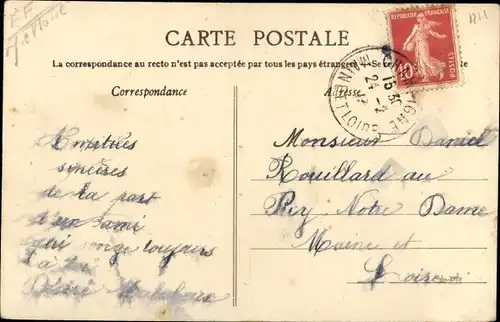 CARTE POSTALE
La correspondance au recto n'est pas acceptée par tous les pays étrangers
Correspondance
Adresse
REPUBLIQUE FRANÇAISE
10c
POSTES
15 30
24 - 2
ET LOIRE
Amitiés
sincères
de la part
d'un ami
qui songe toujours
à toi
Désiré
Monsieur Daniel
Rouillard au
Puy Notre Dame
Maine et
Loire